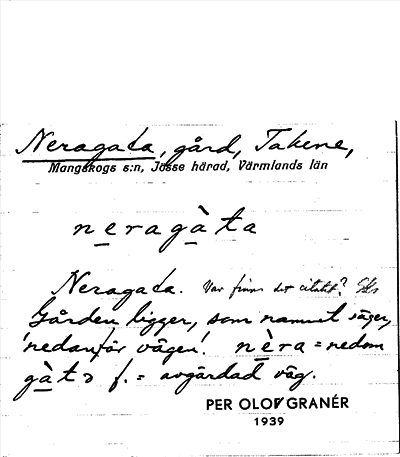 Neragata, gård, Takene,
Mangskogs s:n, Jösse härad, Värmlands län
neragàta
Neragata. Var finns det citatet?
Gården ligger, som namnet säger,
'nedanför vägen'. nèra = nedom
gàtɔ f. = avgärdad väg.
PER OLOV GRANÉR
1939